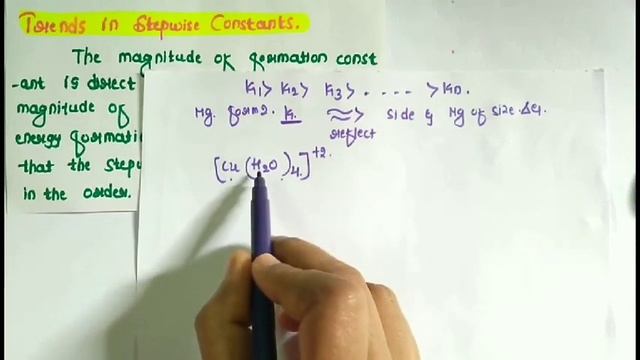 Trends in Stepwise Constants.
The magnitude of formation const
-ant is direct
magnitude of
energy formatio
that the step
in the order.
K1> K2> K3> . . . . > Kn.
Mg. form2. K. ≈> side & Mg of size Δe1.
reflect
[Cu(H2O)4]+2.